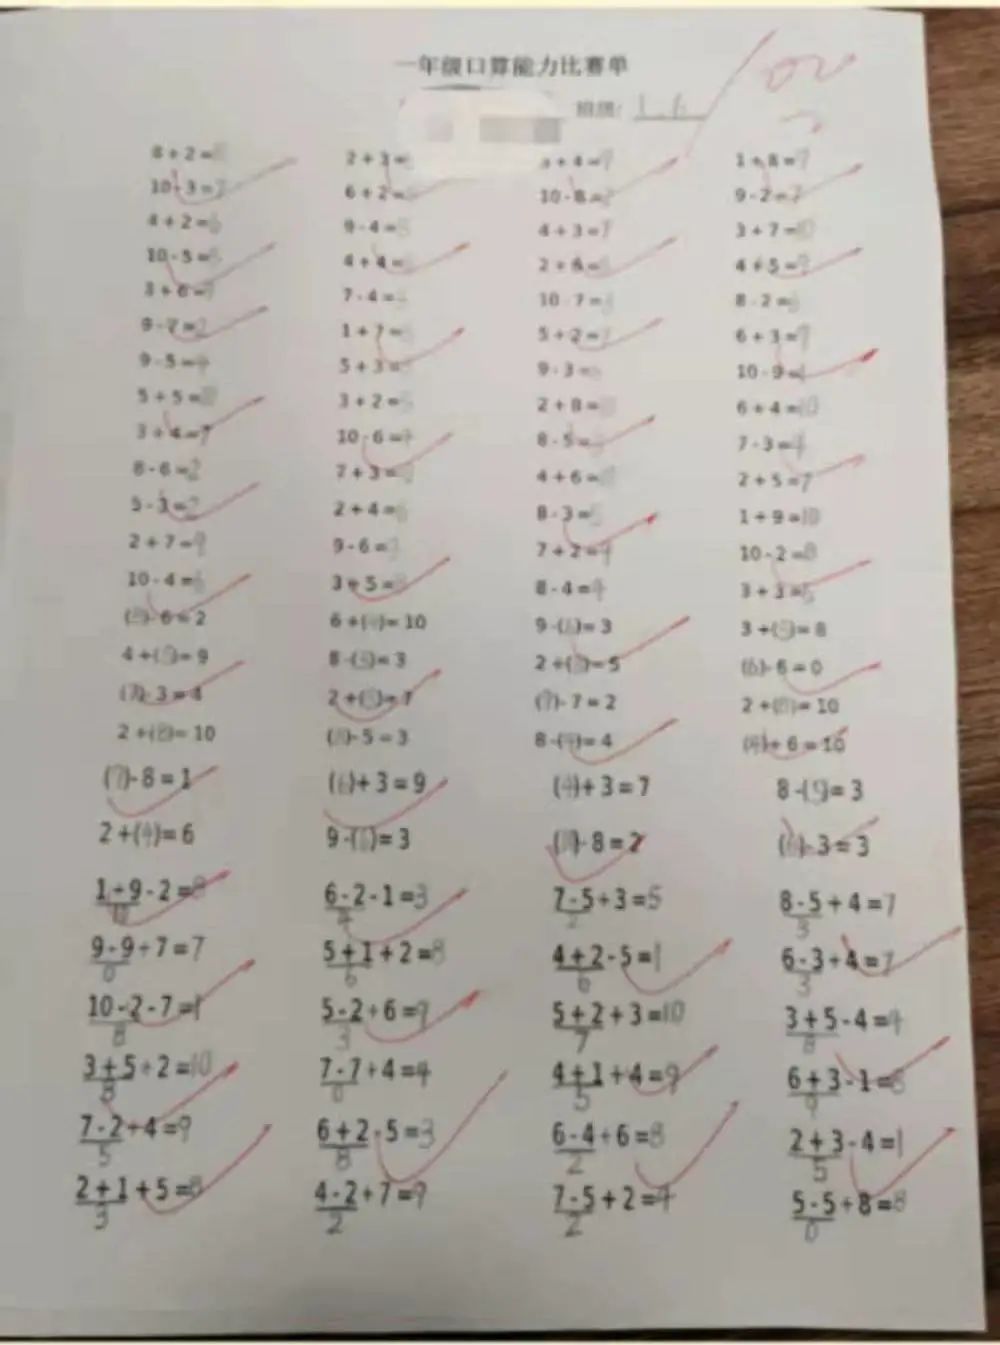 一年级口算能力比赛单
班级: 1.6 100
8+2= 2+3= +4=9 1+8=9
10-3=7 6+2= 10-8=2 9-2=7
4+2=6 9-4=5 4+3=7 3+7=10
10-5=5 4+4= 2+6= 4+5=9
3+6=9 7-4= 10-7=3 8-2=6
9-7=2 1+7= 5+2=7 6+3=9
9-5=4 5+3= 9-3= 10-9=1
5+5=10 3+2=5 2+8= 6+4=10
3+4=7 10-6=4 8-5= 7-3=4
8-6=2 7+3= 4+6= 2+5=7
5-3=2 2+4=6 8-3=5 1+9=10
2+7=9 9-6=3 7+2=9 10-2=8
10-4=6 3+5=8 8-4=4 3+3=6
(8)-6=2 6+(4)=10 9-(6)=3 3+(5)=8
4+(5)=9 8-(5)=3 2+(3)=5 (6)-6=0
(7)-3=4 2+(5)=7 (9)-7=2 2+(8)=10
2+(8)=10 (8)-5=3 8-(4)=4 (4)+6=10
(9)-8=1 (6)+3=9 (4)+3=7 8-(5)=3
2+(4)=6 9-(6)=3 (10)-8=2 (6)-3=3
1+9-2=8 6-2-1=3 7-5+3=5 8-5+4=7
10 4 2 3
9-9+7=7 5+1+2=8 4+2-5=1 6-3+4=7
0 6 6 3
10-2-7=1 5-2+6=9 5+2+3=10 3+5-4=4
8 3 7 8
3+5+2=10 7-7+4=4 4+1+4=9 6+3-1=8
8 0 5 9
7-2+4=9 6+2-5=3 6-4+6=8 2+3-4=1
5 8 2 5
2+1+5=8 4-2+7=9 7-5+2=4 5-5+8=8
3 2 2 0